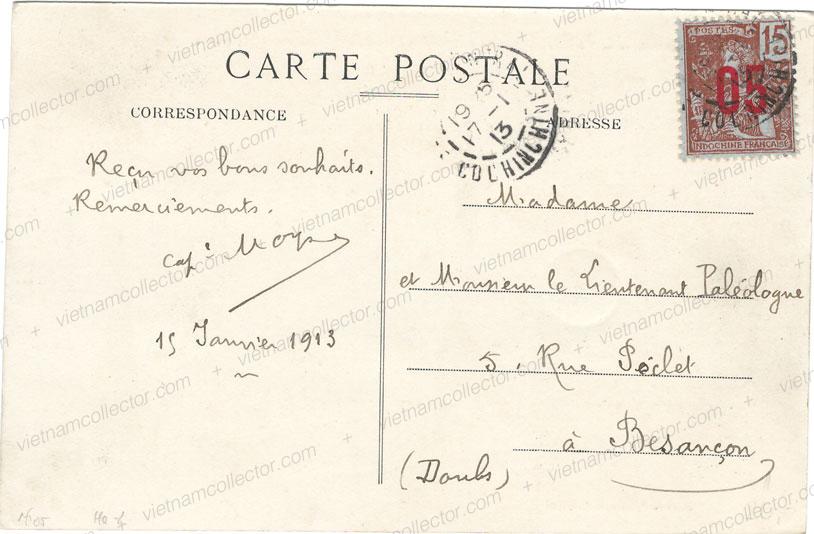 CARTE POSTALE
CORRESPONDANCE
ADRESSE
POSTES 15
05
INDOCHINE FRANÇAISE
19
17 - 1
13
COCHINCHINE
Reçu vos bons souhaits.
Remerciements.
15 Janvier 1913
Madame
et Monsieur le Lieutenant Paléologue
5, Rue
à Besançon
(Doubs)
vietnamcollector.com